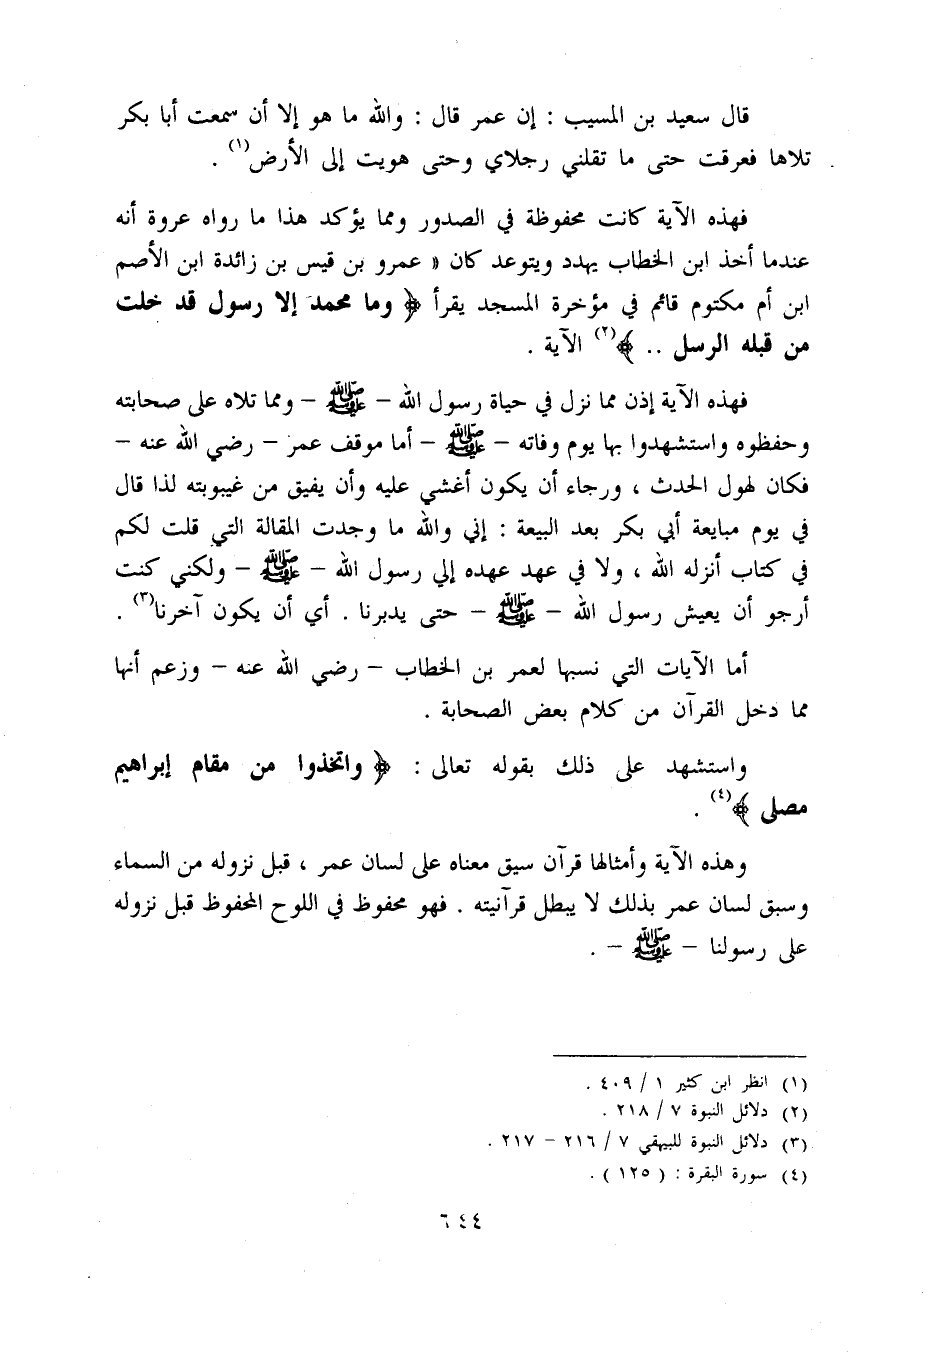 قال سعيد بن المسيب : إن عمر قال : والله ما هو إلا أن سمعت أبا بكر
تلاها فعرقت حتى ما تقلني رجلاي وحتى هويت إلى الأرض(١) .
فهذه الآية كانت محفوظة في الصدور ومما يؤكد هذا ما رواه عروة أنه
عندما أخذ ابن الخطاب يهدد ويتوعد كان « عمرو بن قيس بن زائدة ابن الأصم
ابن أم مكتوم قائم في مؤخرة المسجد يقرأ ﴿ وما محمد إلا رسول قد خلت
من قبله الرسل .. ﴾(٢) الآية .
فهذه الآية إذن مما نزل في حياة رسول الله – ﷺ – ومما تلاه على صحابته
وحفظوه واستشهدوا بها يوم وفاته – ﷺ – أما موقف عمر – رضي الله عنه –
فكان لهول الحدث ، ورجاء أن يكون أغشي عليه وأن يفيق من غيبوبته لذا قال
في يوم مبايعة أبي بكر بعد البيعة : إني والله ما وجدت المقالة التي قلت لكم
في كتاب أنزله الله ، ولا في عهد عهده إلي رسول الله – ﷺ – ولكني كنت
أرجو أن يعيش رسول الله – ﷺ – حتى يدبرنا . أي أن يكون آخرنا(٣) .
أما الآيات التي نسبها لعمر بن الخطاب – رضي الله عنه – وزعم أنها
مما دخل القرآن من كلام بعض الصحابة .
واستشهد على ذلك بقوله تعالى : ﴿ واتخذوا من مقام إبراهيم
مصلى ﴾(٤) .
وهذه الآية وأمثالها قرآن سيق معناه على لسان عمر ، قبل نزوله من السماء
وسبق لسان عمر بذلك لا يبطل قرآنيته . فهو محفوظ في اللوح المحفوظ قبل نزوله
على رسولنا – ﷺ – .
(١) انظر ابن كثير ١ / ٤٠٩ .
(٢) دلائل النبوة ٧ / ٢١٨ .
(٣) دلائل النبوة للبيهقي ٧ / ٢١٦ – ٢١٧ .
(٤) سورة البقرة : ( ١٢٥ ) .
٦٤٤